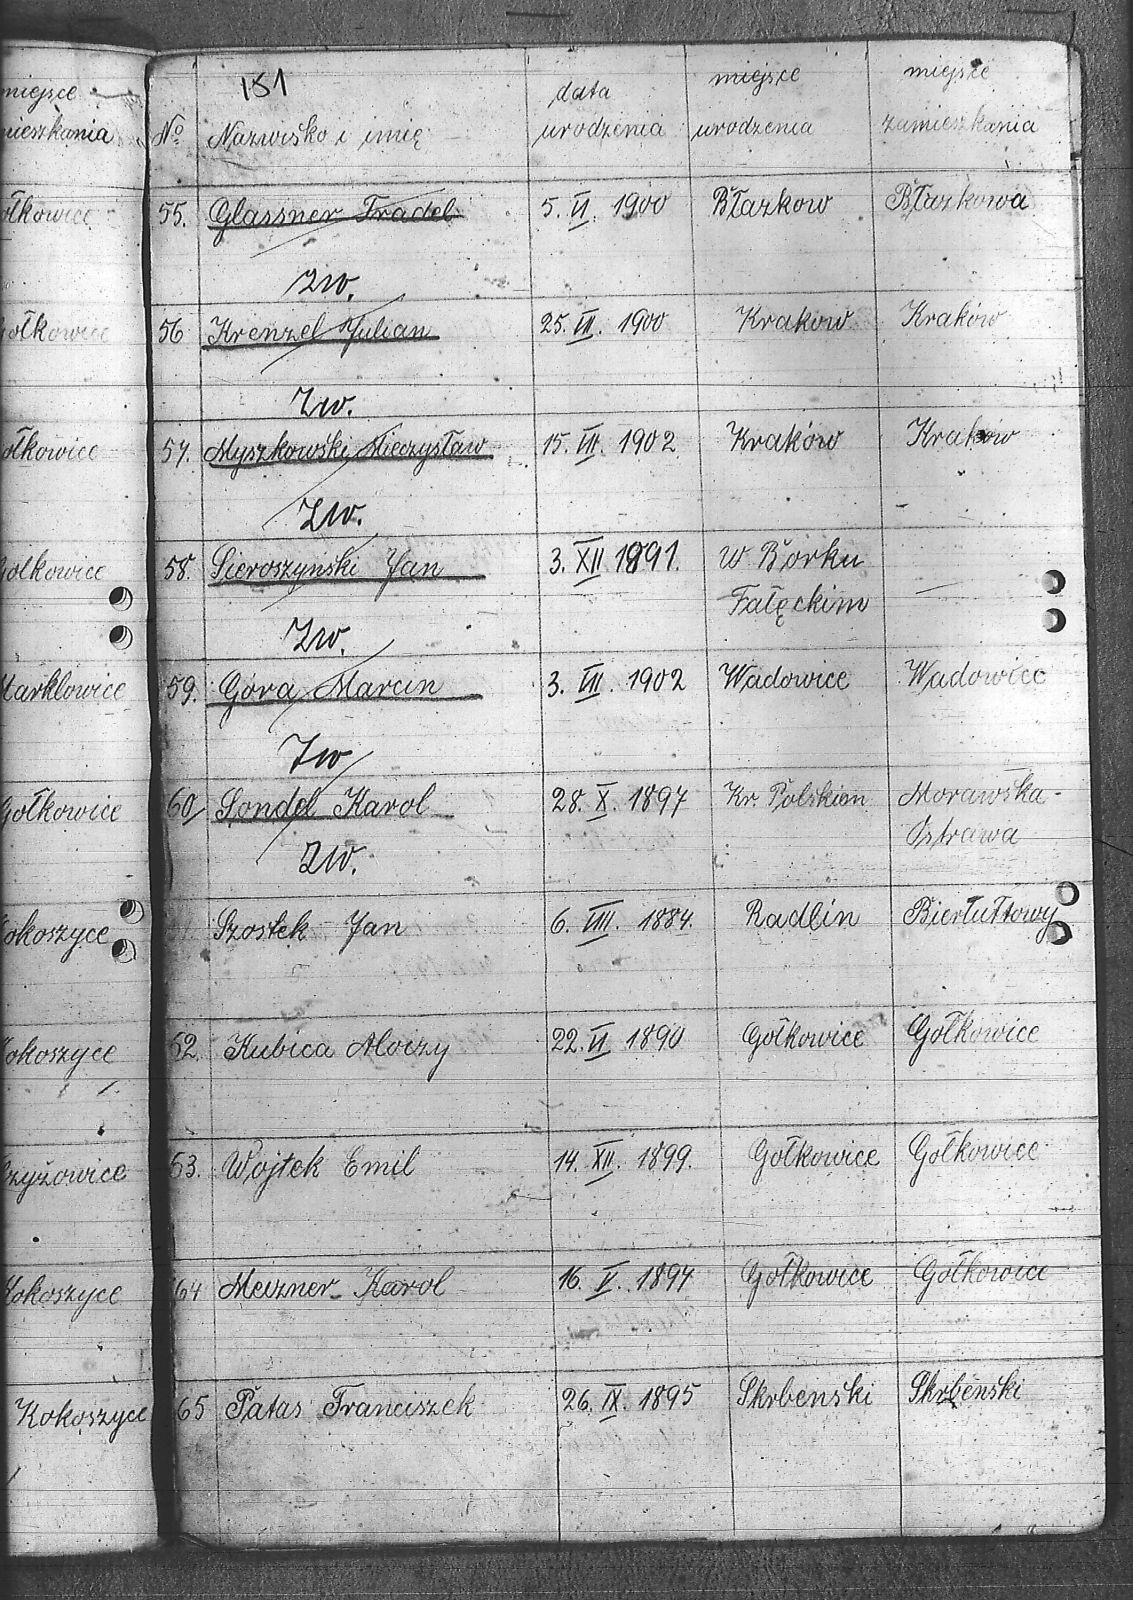 miejsce
mieszkania
ołkowice
Gołkowice
ołkowice
Gołkowice
Marklowice
Gołkowice
Kokoszyce
Kokoszyce
Krzyżowice
Kokoszyce
Kokoszyce
151
No Nazwisko i imię data urodzenia miejsce urodzenia miejsce zamieszkania
55. Glassner Fradel 5. VI. 1900 Błazkow Błazkowa
zw.
56 Krenzel Julian 25. VII. 1900 Krakow Kraków
Zw.
57. Myszkowski Mieczysław 15. VII. 1902 Kraków Krakow
Zw.
58. Sieroszyński Jan 3. XII 1891. w Borku
Fałęckim —
Zw.
59. Góra Marcin 3. VII. 1902 Wadowice Wadowice
Zw
60 Sondel Karol 28. X. 1897 Kr. Polskiem Morawska-
Ostrawa
zw.
Szostek Jan 6. VIII. 1884. Radlin Biertułtowy
62. Kubica Aloizy 22. VI 1890 Gołkowice Gołkowice
63. Wojtek Emil 14. XII. 1899. Gołkowice Gołkowice
64 Meizner Karol 16. V. 1897 Gołkowice Gołkowice
65 Patas Franciszek 26. IX. 1895 Skrbenski Skrbenski